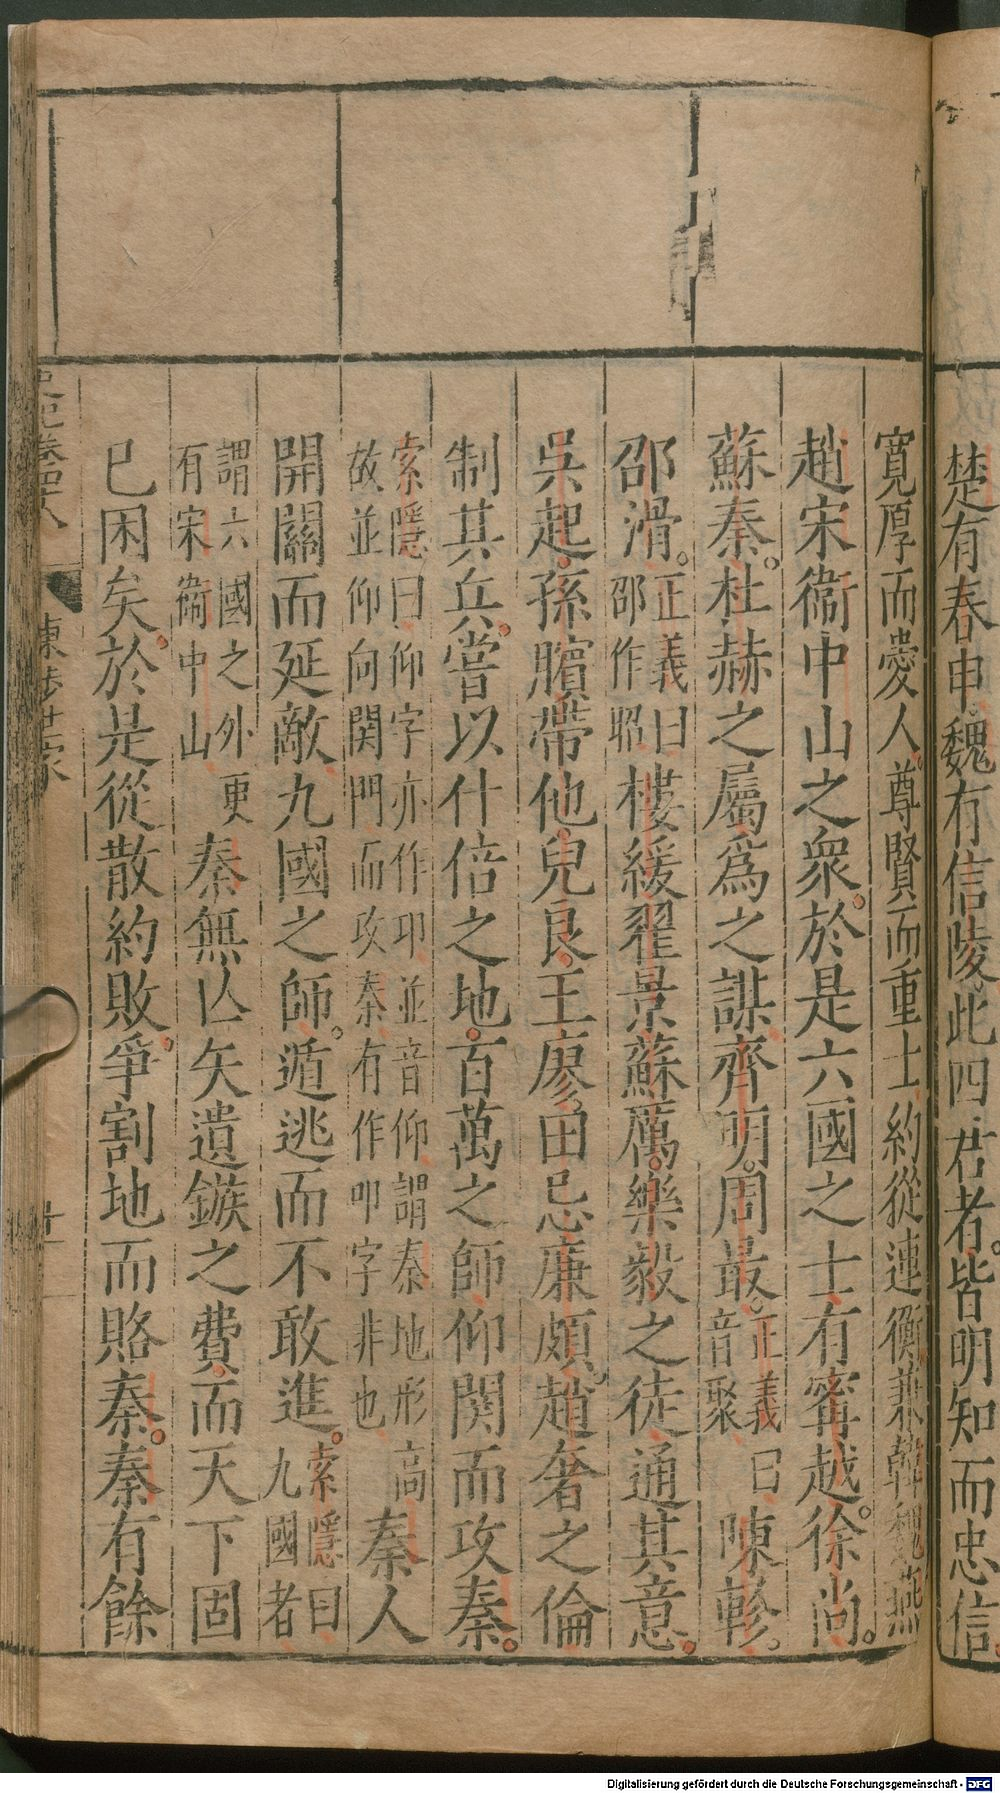 楚有春申魏有信陵此四君者皆明知而忠信
寬厚而愛人尊賢而重士約從連衡兼韓魏燕
趙宋衞中山之衆於是六國之士有甯越徐尚
蘇秦杜赫之屬爲之謀齊明周最正義曰音聚陳軫
邵滑正義曰邵作昭樓緩翟景蘇厲樂毅之徒通其意
吳起孫臏帶他兒良王廖田忌廉頗趙奢之倫
制其兵嘗以什倍之地百萬之師仰関而攻秦
索隱曰仰字亦作卬並音仰謂秦地形高故並仰向関門而攻秦有作叩字非也秦人
開關而延敵九國之師遁逃而不敢進索隱曰九國者
謂六國之外更有宋衞中山秦無亾矢遺鏃之費而天下固
已困矣於是從散約敗爭割地而賂秦秦有餘
史記卷四八 陳涉世家
Digitalisierung gefördert durch die Deutsche Forschungsgemeinschaft - DFG